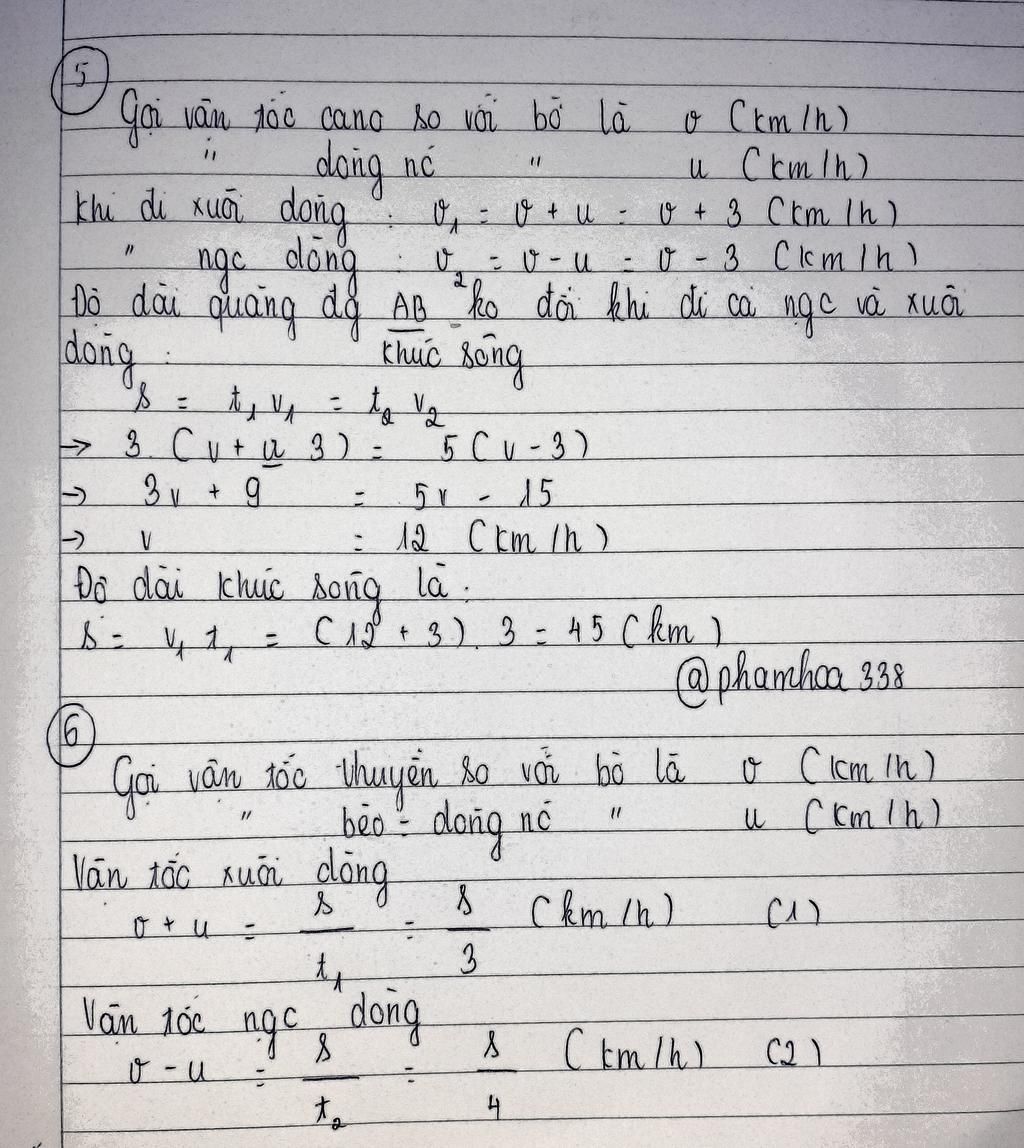 5
Gọi vận tốc cano so với bờ là v (km/h)
" dòng nc " u (km/h)
khi đi xuôi dòng : v₁ = v + u = v + 3 (km/h)
" ngc dòng : v₂ = v - u = v - 3 (km/h)
Độ dài quãng đg AB ko đổi khi đi cả ngc và xuôi
dòng : khúc sông
s = t₁ v₁ = t₂ v₂
→ 3. (v + u 3) = 5 (v - 3)
→ 3v + 9 = 5v - 15
→ v = 12 (km/h)
Độ dài khúc sông là :
s = v₁ t₁ = (12 + 3). 3 = 45 (km)
@phamhoa338
6
Gọi vận tốc thuyền so với bờ là v (km/h)
" bèo = dòng nc " u (km/h)
Vận tốc xuôi dòng
v + u = s/t₁ = s/3 (km/h) (1)
Vận tốc ngc dòng
v - u = s/t₂ = s/4 (km/h) (2)